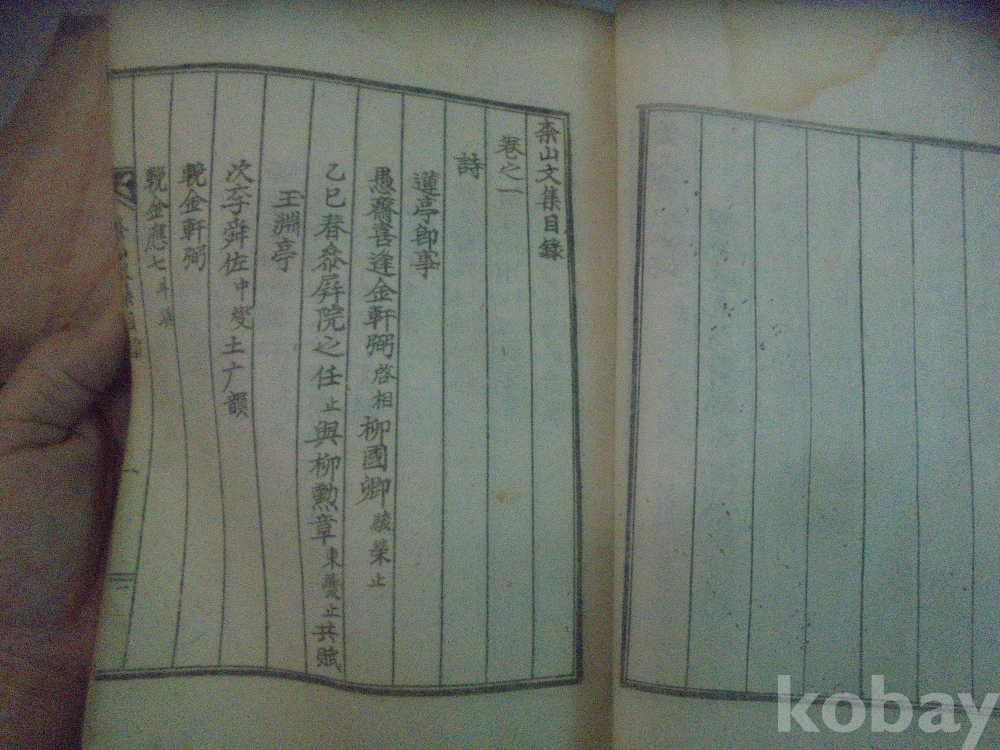 山文集目錄
卷之一
詩
蓮亭卽事
愚齋喜逢金軒弼啓相柳國卿駿榮止
乙巳春叅屛院之任止與柳勲章東蘷止共賦
玉淵亭
次李舜佐中燮土广韻
輓金軒弼
輓金應七斗
一
kobay